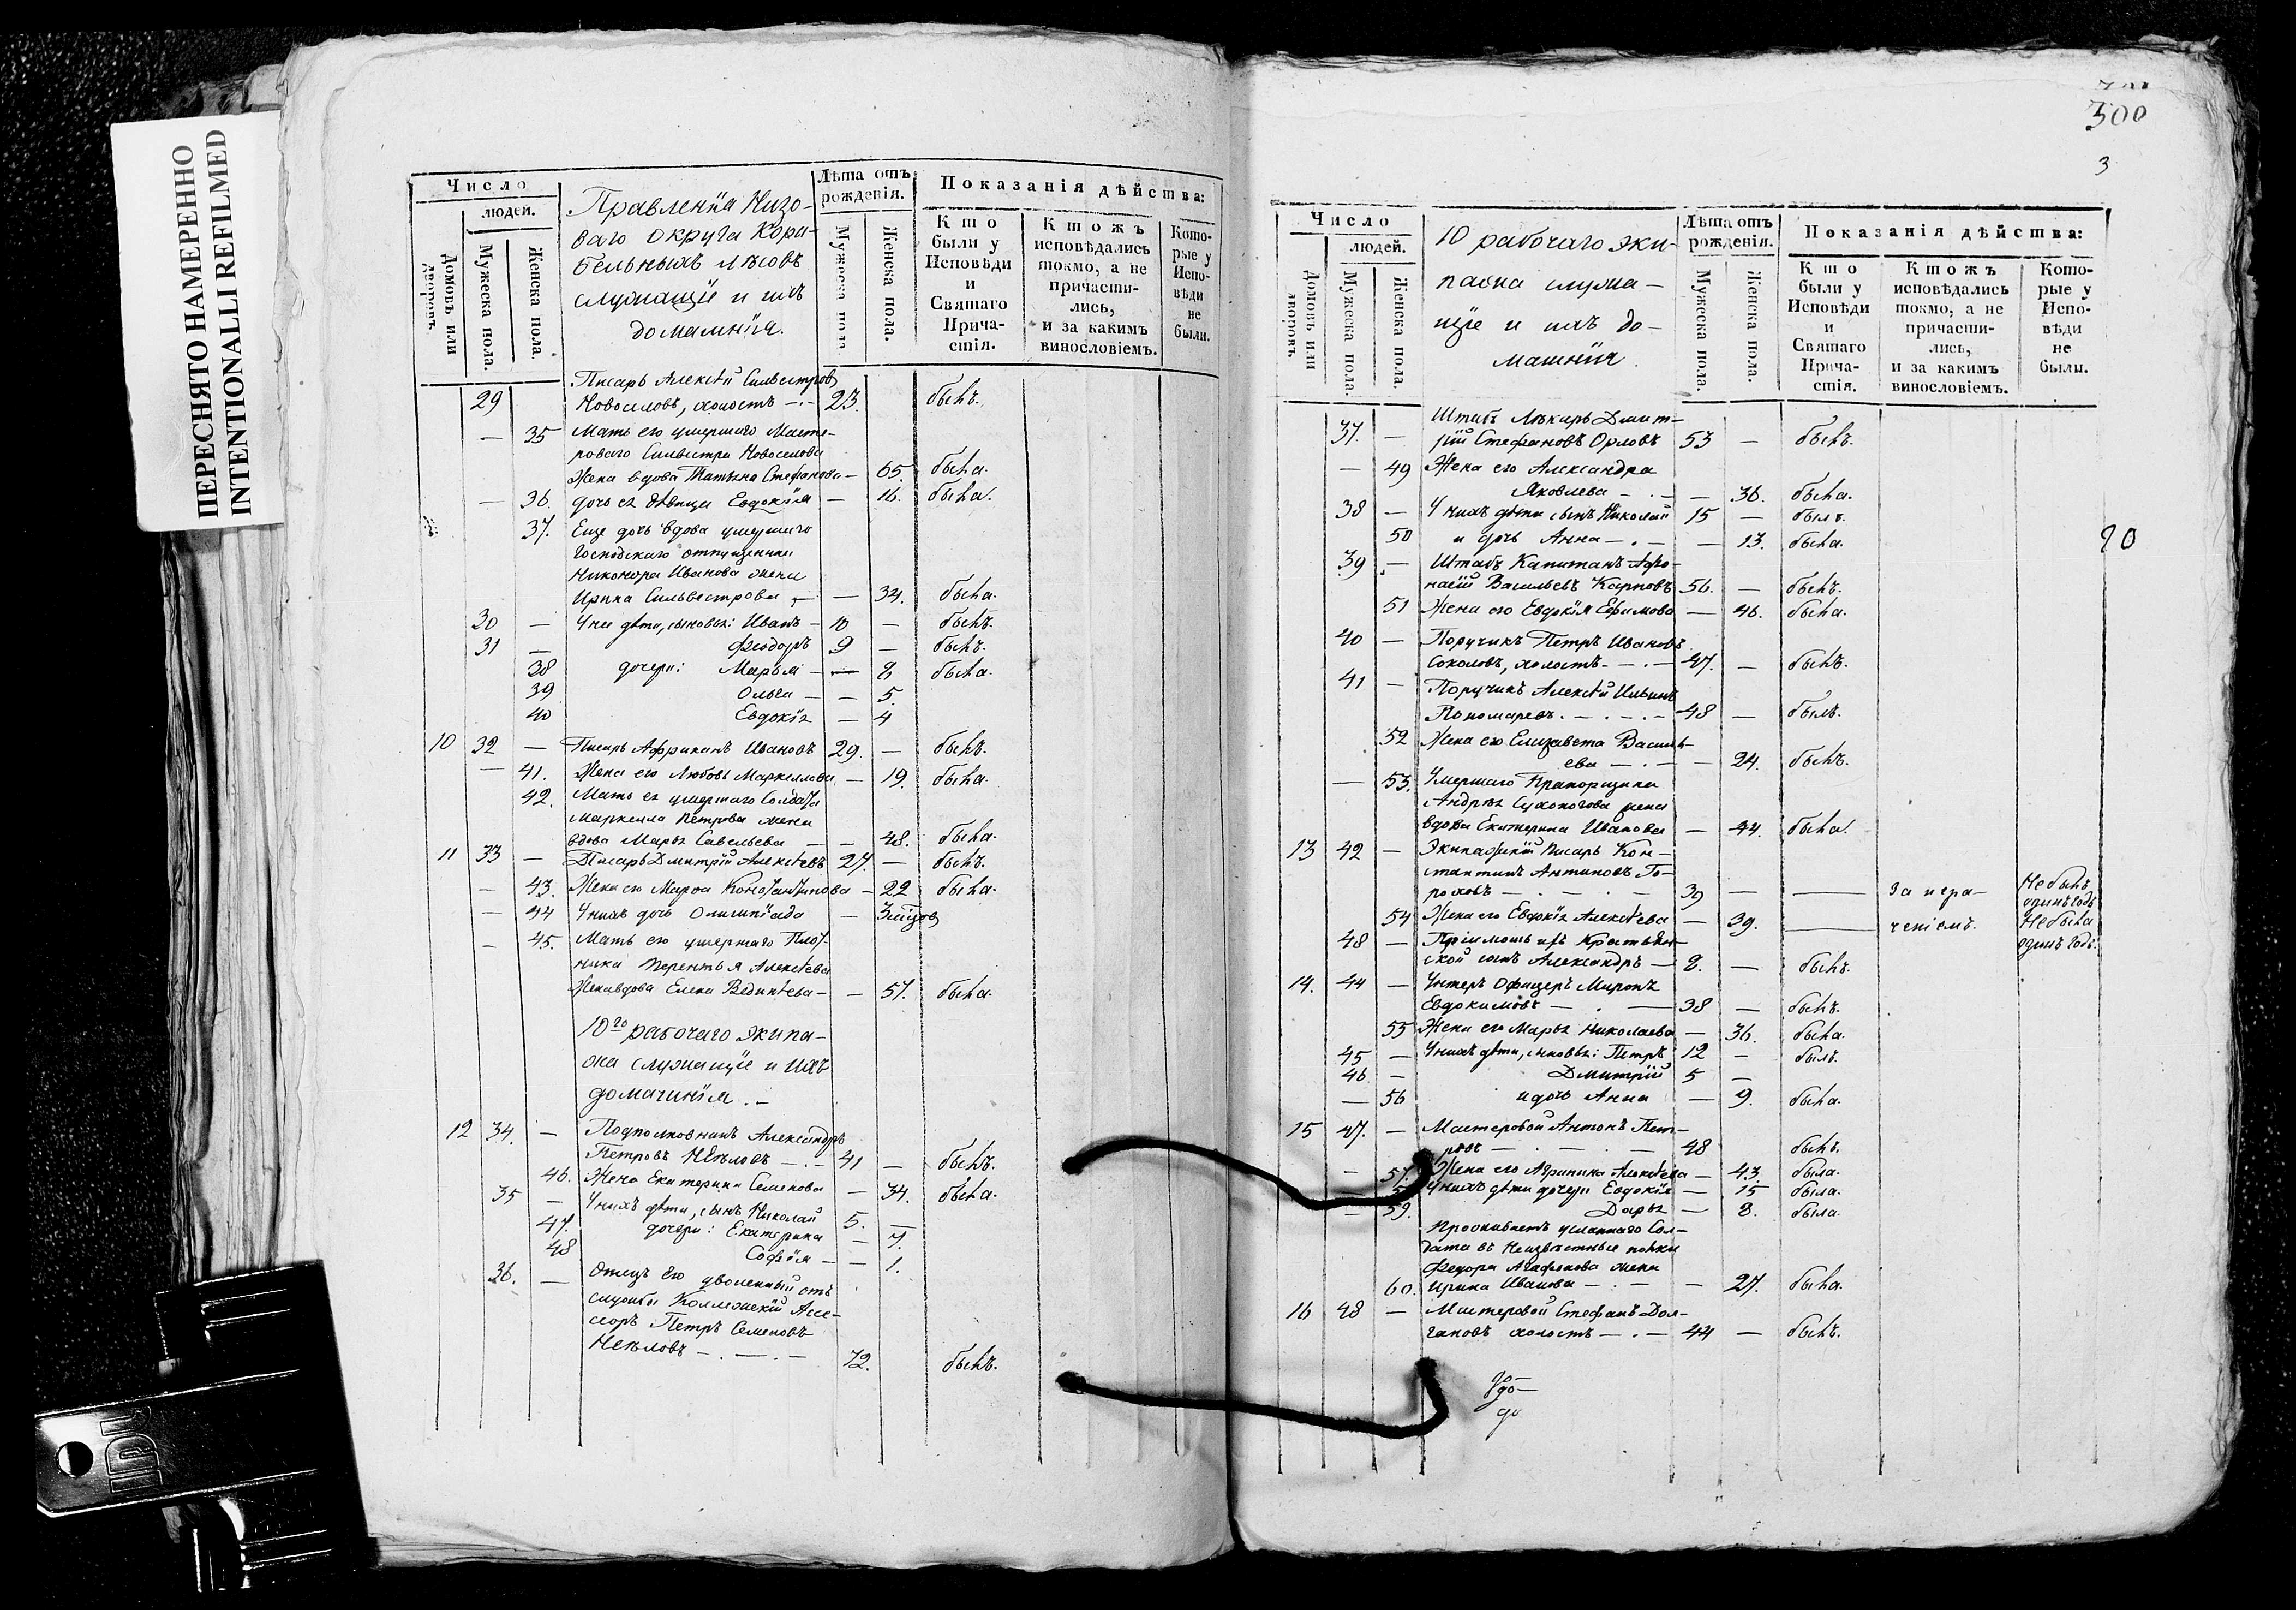 ПЕРЕСНЯТО НАМЕРЕННО
INTENTIONALLI REFILMED
Число
людей.
Домовъ или дворовъ.
Мужеска пола.
Женска пола.
Правленія Низо-
ваго Округа Кора-
бельныхъ лѣсовъ
служащіе и ихъ
домашнія.
Лѣта отъ рожденія.
Мужеска пола
Женска пола.
Показанія дѣйства:
Кто были у Исповѣди и Святаго Причастія.
Ктожъ исповѣдались токмо, а не причастились, и за какимъ винословіемъ.
Которые у Исповѣди не были.
Писарь Алексѣй Сильвестровъ
29 Новоселовъ, холостъ 23. былъ.
— 35 Мать его умершаго Масте-
роваго Сильвестра Новоселова
Жена вдова Татьяна Стефанова — 65. была.
— 36. дочь ея дѣвица Евдокія — 16. была.
37. Еще дочь вдова умершаго
Господскаго отпущеника
Никонора Иванова жена
Ирина Сильвестрова — 34. была.
30 — У нее дѣти, сыновья: Иванъ — 10 — былъ.
31 — Феодоръ 9 — былъ.
38 дочери: Марья — 8 была.
39 Ольга — 5.
40 Евдокія — 4
10 32 — Писарь Африканъ Ивановъ 29. — былъ.
— 41. Жена его Любовь Маркеллова — 19. была.
42. Мать ея умершаго Солдата
Маркелла Петрова жена
вдова Марья Савельева — 48. была.
11 33 — Писарь Дмитрій Алексѣевъ 27. — былъ.
— 43. Жена его Марѳа Константинова — 22 была.
— 44 У нихъ дочь Олимпіада —
— 45. Мать его умершаго Плот-
ника Терентья Алексѣева
Жена вдова Елена Вединѣева — 57. была.
10го рабочаго экипа-
жа служащіе и ихъ
домашнія.
12 34. — Подполковникъ Александръ
Петровъ Нѣеловъ 41 — былъ.
46. Жена Екатерина Семенова — 34. была.
35 — У нихъ дѣти, сынъ Николай 5. —
47. дочери: Екатерина — 7.
48 Софія — 1.
36. — Отецъ его уволенный отъ
службы Коллежскій Ассе-
соръ Петръ Семеновъ
Нѣеловъ 72. былъ.
300
3
Число
людей.
Домовъ или дворовъ.
Мужеска пола.
Женска пола.
10 рабочаго эки-
пажа служа-
щіе и ихъ до-
машнія.
Лѣта отъ рожденія.
Мужеска пола.
Женска пола.
Показанія дѣйства:
Кто были у Исповѣди и Святаго Причастія.
Ктожъ исповѣдались токмо, а не причастились, и за какимъ винословіемъ.
Которые у Исповѣди не были.
Штабъ Лѣкарь Дмит-
37. — рій Стефановъ Орловъ 53 — былъ.
— 49 Жена его Александра
Яковлева — 36. была.
38 — У нихъ дѣти сынъ Николай 15 — былъ.
50 и дочь Анна — 13. была.
90
39. — Штабъ Капитанъ Афо-
насій Васильевъ Карповъ 56. — былъ.
51 Жена его Евдокія Ефимова — 46. была.
40 — Поручикъ Петръ Ивановъ
Соколовъ, холостъ — 47. — былъ.
41 — Поручикъ Алексѣй Ильинъ
Пономаревъ 48 — былъ.
52 Жена его Елизавета Василь-
ева — 24. былъ.
— 53. Умершаго Прапорщика
Андрея Сухоногова жена
вдова Екатерина Иванова — 44. была.
13 42 — Экипажскій Писарь Кон-
стантинъ Антиповъ Го-
роховъ 39 — — За изра- Не былъ
одинъ годъ
54 Жена его Евдокія Алексѣева — 39. — ченіемъ. Не была
одинъ годъ.
48 — Пріимошъ
сынъ Александръ — 2. — былъ.
14. 44 — Унтеръ Офицеръ Миронъ
Евдокимовъ 38 — былъ.
55 Жена его Марья Николаева — 36. была.
45 — У нихъ дѣти, сыновья: Петръ 12 — былъ.
46 — Дмитрій 5 —
— 56 и дочь Анна — 9. была.
15 47. — Мастеровой Антонъ Пет-
ровъ 48 былъ.
— 57. Жена его Агрипина Алексѣева — 43. была.
58 У нихъ дѣти дочери Евдокія — 15 была.
— 59. Дарья — 8. была.
Проживаетъ усланнаго Сол-
дата въ Неизвѣстные полки
Федора Агафонова жена
60. Ирина Иванова — 27. была.
16 48 — Мастеровой Стефанъ Дол-
гановъ холостъ — 44 — былъ.